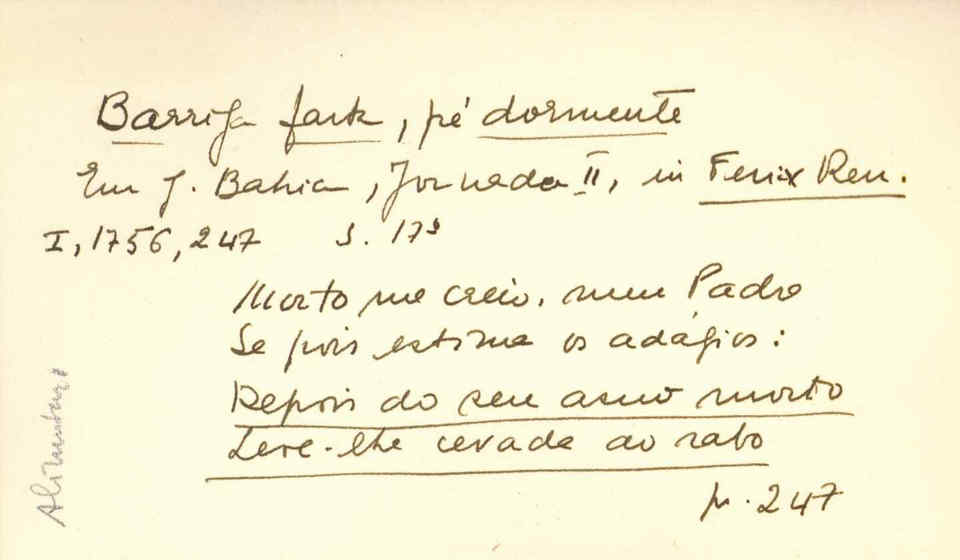 Barriga farta, pé dormente
Em J. Bahia, Jornada II, in Fenix Ren.
I, 1756, 247 S. 17º
Morto me creio, meu Padre
Se pois estima os adágios:
Depois do seu asno morto
Leve-lhe cevada ao rabo
p. 247
Alimentação